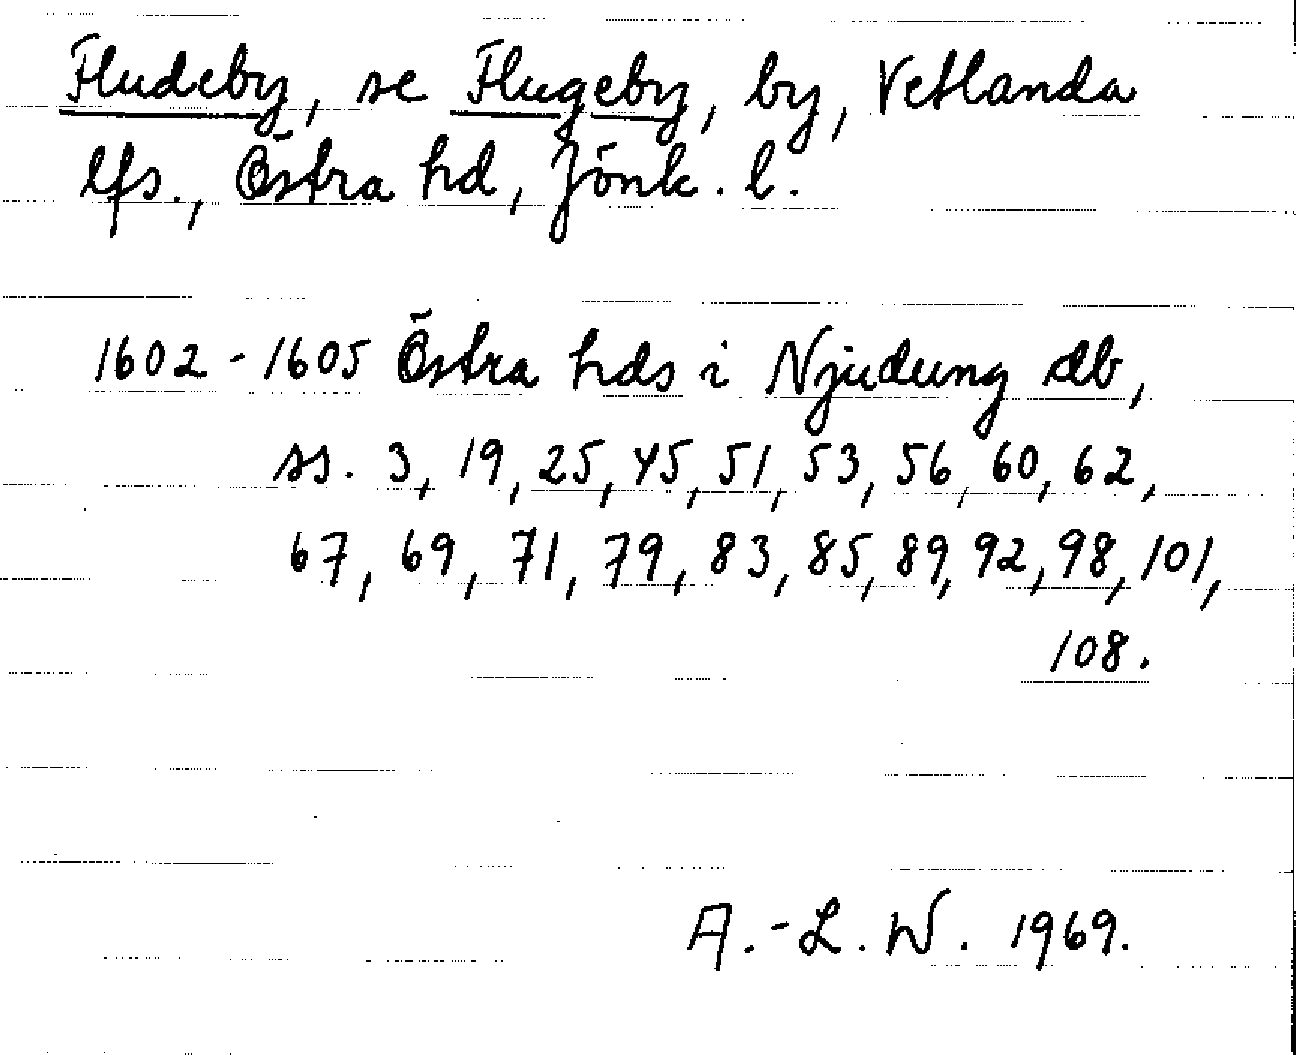 Fludeby, se Flugeby, by, Vetlanda
lfs., Östra hd, Jönk. l.
1602-1605 Östra hds i Njudung db,
ss. 3, 19, 25, 45, 51, 53, 56, 60, 62,
67, 69, 71, 79, 83, 85, 89, 92, 98, 101,
108.
A.-L. W. 1969.